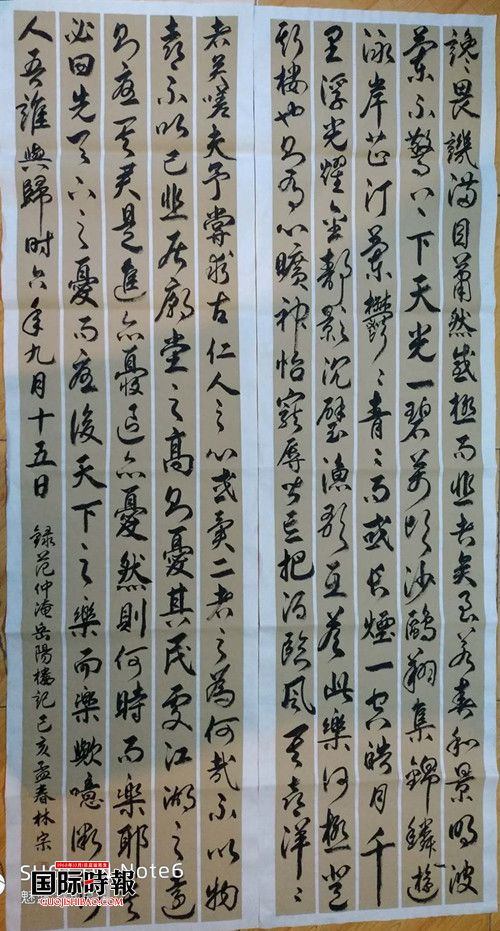 讒畏譏滿目蕭然感極而悲者矣至若春和景明波
瀾不驚上下天光一碧萬頃沙鷗翔集錦鱗遊
泳岸芷汀蘭鬱〻青〻而或長煙一空皓月千
里浮光耀金靜影沉璧漁歌互答此樂何極登
斯樓也則有心曠神怡寵辱皆忘把酒臨風其喜洋〻
者矣嗟夫予嘗求古仁人之心或異二者之為何哉不以物
喜不以己悲居廟堂之高則憂其民處江湖之遠
則憂其君是進亦憂退亦憂然則何時而樂耶其
必曰先天下之憂而憂後天下之樂而樂歟噫微斯
人吾誰與歸時六年九月十五日
錄范仲淹岳陽樓記己亥孟春林宗
Note6
国际時報
GUOJISHIBAO.COM